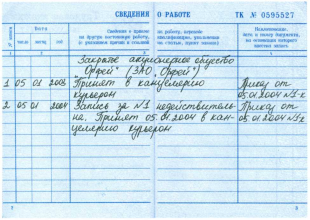 СВЕДЕНИЯ О РАБОТЕ ТК № 0595527
№ записи
Дата
число
месяц
год
Сведения о приеме
на работу, переводе
на другую постоянную работу,
квалификации, увольнении
(с указанием причин и ссылкой
на статью, пункт закона)
Наименование,
дата и номер документа,
на основании которого
внесена запись
1 2 3 4
Закрытое акционерное общество
"Орфей" (ЗАО "Орфей")
1 05 01 2003 Принят в канцелярию Приказ от
курьером 05.01.2004 №1-к
2 05 01 2004 Запись за №1 недействитель- Приказ от
на. Принят 05.01.2004 в кан- 05.01.2004 №1-к
целярию курьером